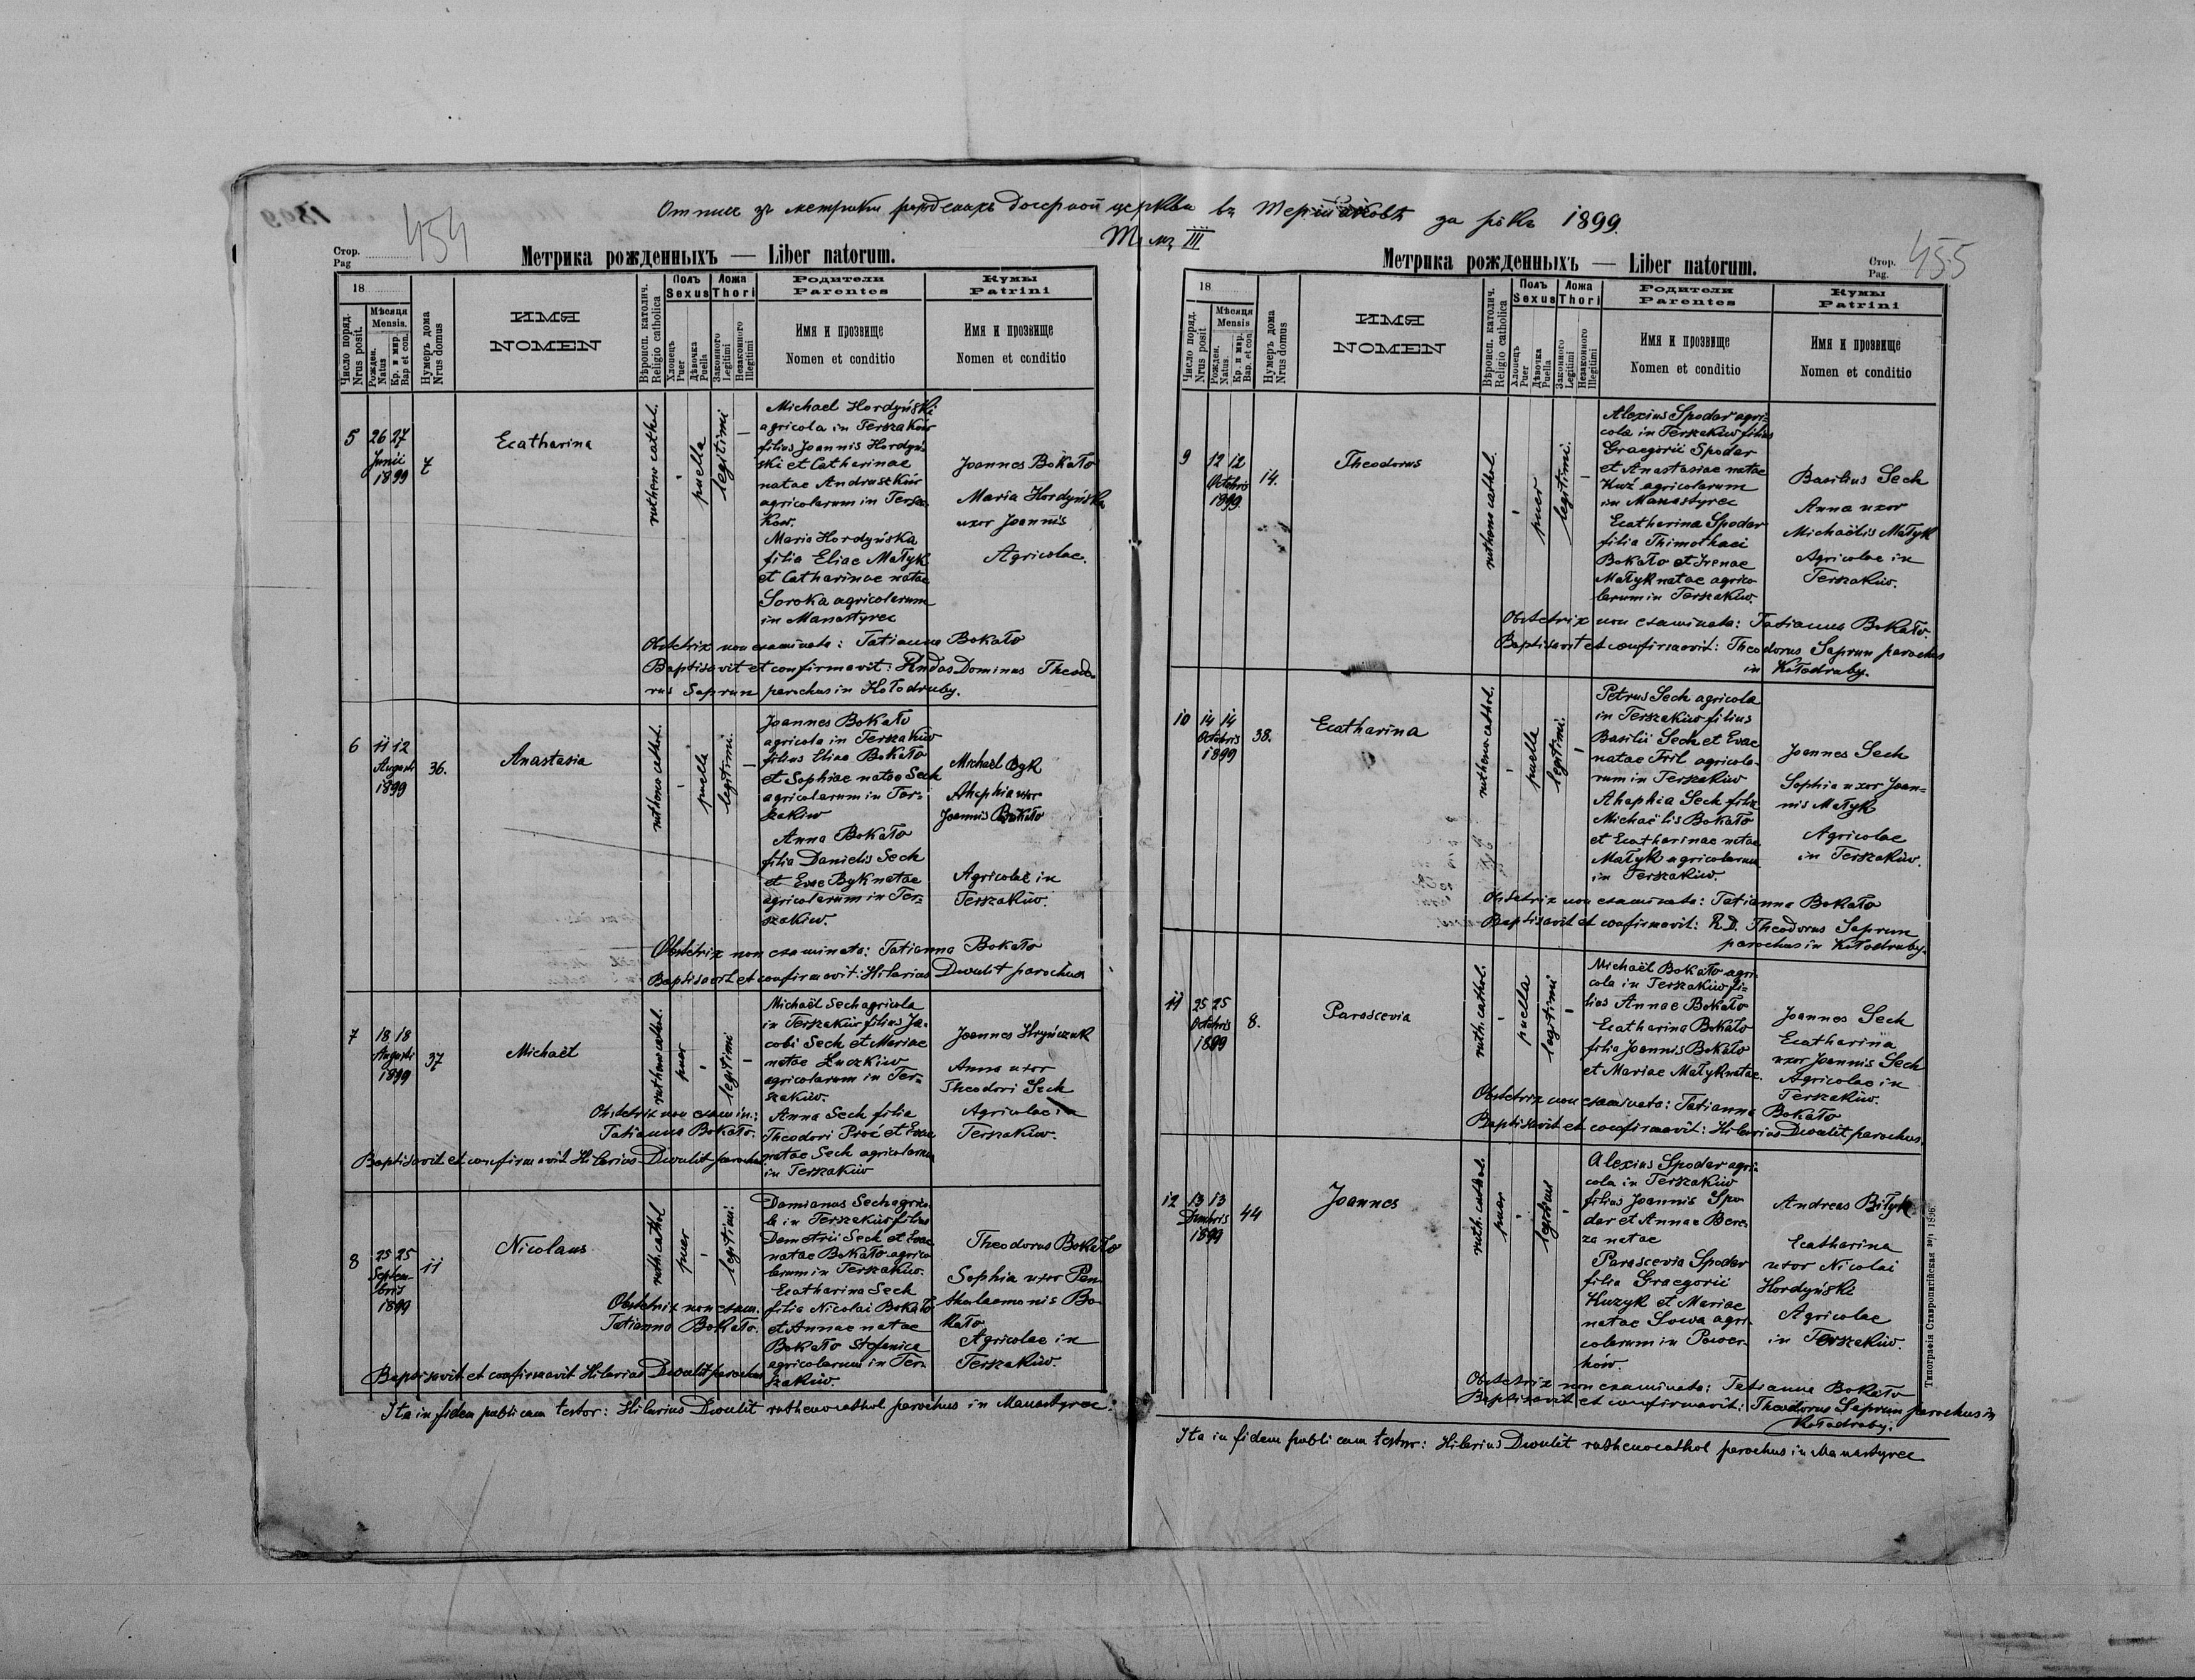 1899
Отпис зъ метрики рожденыхъ дочерной церкви въ Тершаковѣ за рôкъ 1899.
Том III
454
Стор.
Pag
Метрика рожденныхъ — Liber natorum.
18
Число поряд. Nrus posit.
Мѣсяця Mensis.
Рожден. Natus
Кр. и мир. Bap et con.
Нумеръ дома Nrus domus
ИМЯ
NOMEN
Вѣроисп. католич. Religio catholica
Полъ Sexus
Хлопець Puer
Дѣвочка Puella
Ложа Thori
Законного Legitimi
Незаконного Illegitimi
Родители
Parentes
Имя и прозвище
Nomen et conditio
Кумы
Patrini
Имя и прозвище
Nomen et conditio
5
26 27
Junii
1899
7
Ecatharina
rutheno cathol.
puella
legitimi
Michael Hordyński
agricola in Terszaków
filius Joannis Hordyń-
ski et Catharinae
natae Andruszków
agricolarum in Tersza-
ków.
Maria Hordyńska
filia Eliae Małyk
et Catharinae natae
Soroka agricolarum
in Manastyrec
Joannes Bokało
Maria Hordyńska
uxor Joannis
Agricolae.
Obstetrix non examinata: Tatianna Bokało
Baptisavit et confirmavit: Rndus Dominus Theodo-
rus Saprun parochus in Kołodruby.
6
11 12
Augusti
1899
36.
Anastasia
rutheno cathol.
puella
legitimi.
Joannes Bokało
agricola in Terszaków
filius Eliae Bokało
et Sophiae natae Sech
agricolarum in Ter-
szaków
Anna Bokało
filia Danielis Sech
et Evae Byk natae
agricolarum in Ter-
szaków.
Michael Byk
Ahaphia uxor
Joannis Bokało
Agricolae in
Terszaków.
Obstetrix non examinata: Tatianna Bokało
Baptisavit et confirmavit: Hilarius Dwulit parochus
7
18 18
Augusti
1899
37
Michaël
rutheno cathol.
puer
legitimi
Michaël Sech agricola
in Terszaków filius Ja-
cobi Sech et Mariae
natae Łuczków
agricolarum in Ter-
szaków.
Anna Sech filia
Theodori Proć et Evae
natae Sech agricolarum
in Terszaków
Joannes Hryńczuk
Anna uxor
Theodori Sech
Agricolae in
Terszaków.
Obstetrix non examin.:
Tatianna Bokało.
Baptisavit et confirmavit Hilarius Dwulit parochus
8
25 25
Septem-
bris
1899
11
Nicolaus
ruth. cathol
puer
legitimi.
Damianus Sech agrico-
la in Terszaków filius
Demetrii Sech et Evae
natae Bokało agrico-
larum in Terszaków.
Ecatharina Sech
filia Nicolai Bokało
et Annae natae
Bokało Stefanica
agricolarum in Ter-
szaków.
Theodorus Bokało
Sophia uxor Pan-
thalaemonis Bo-
kało
Agricolae in
Terszaków.
Obstetrix non exam.
Tatianna Bokało.
Baptisavit et confirmavit Hilarius Dwulit parochus
Ita in fidem publicam testor: Hilarius Dwulit ruthenocathol parochus in Manastyrec.
Метрика рожденныхъ — Liber natorum.
Стор.
Pag.
455
18
Число поряд. Nrus posit.
Мѣсяця Mensis
Рожден. Natus.
Кр. и мир. Bap. et con
Нумеръ дома Nrus domus
ИМЯ
NOMEN
Вѣроисп. католич. Religio catholica
Полъ Sexus
Хлопець Puer
Дѣвочка Puella
Ложа Thori
Законного Legitimi
Незаконного Illegitimi
Родители
Parentes
Имя и прозвище
Nomen et conditio
Кумы
Patrini
Имя и прозвище
Nomen et conditio
9
12 12
Octobris
1899.
14.
Theodorus
rutheno cathol.
puer
legitimi.
Alexius Spodar agri-
cola in Terszaków filius
Graegorii Spodar
et Anastasiae natae
Kuź agricolarum
in Manastyrec
Ecatharina Spodar
filia Thimothaei
Bokało et Irenae
Małyk natae agrico-
larum in Terszaków.
Basilius Sech
Anna uxor
Michaëlis Małyk
Agricolae in
Terszaków.
Obstetrix non examinata: Tatianna Bokało.
Baptisavit et confirmavit: Theodorus Saprun parochus
in Kołodruby.
10
14 14
Octobris
1899
38.
Ecatharina
rutheno cathol.
puella
legitimi.
Petrus Sech agricola
in Terszaków filius
Basilii Sech et Evae
natae Fril agricola-
rum in Terszaków
Ahaphia Sech filia
Michaëlis Bokało
et Ecatharinae natae
Małyk agricolarum
in Terszaków.
Joannes Sech
Sophia uxor Joan-
nis Małyk
Agricolae
in Terszaków.
Obstetrix non examinata: Tatianna Bokało
Baptisavit et confirmavit: R.D. Theodorus Saprun
parochus in Kołodruby.
11
25 25
Octobris
1899
8.
Parascevia
ruth. cathol.
puella
legitimi
Michaël Bokało agri-
cola in Terszaków fi-
lius Annae Bokało
Ecatharina Bokało
filia Joannis Bokało
et Mariae Małyk natae.
Joannes Sech
Ecatharina
uxor Joannis Sech
Agricolae in
Terszaków.
Obstetrix non examinata: Tatianna Bokało
Baptisavit et confirmavit: Hilarius Dwulit parochus.
12
13 13
Dembris
1899
44
Joannes
ruth. cathol.
puer
legitimi
Alexius Spodar agri-
cola in Terszaków
filius Joannis Spo-
dar et Annae Bere-
za natae
Parascevia Spodar
filia Graegorii
Kuzyk et Mariae
natae Sowa agri-
colarum in Power-
hów.
Andreas Biłyk
Ecatharina
uxor Nicolai
Hordyński
Agricolae
in Terszaków.
Obstetrix non examinata: Tatianna Bokało
Baptisavit et confirmavit: Theodorus Saprun parochus in
Kołodruby.
Ita in fidem publicam testor: Hilarius Dwulit ruthenocathol parochus in Manastyrec
Типографія Ставропигійская 1896.